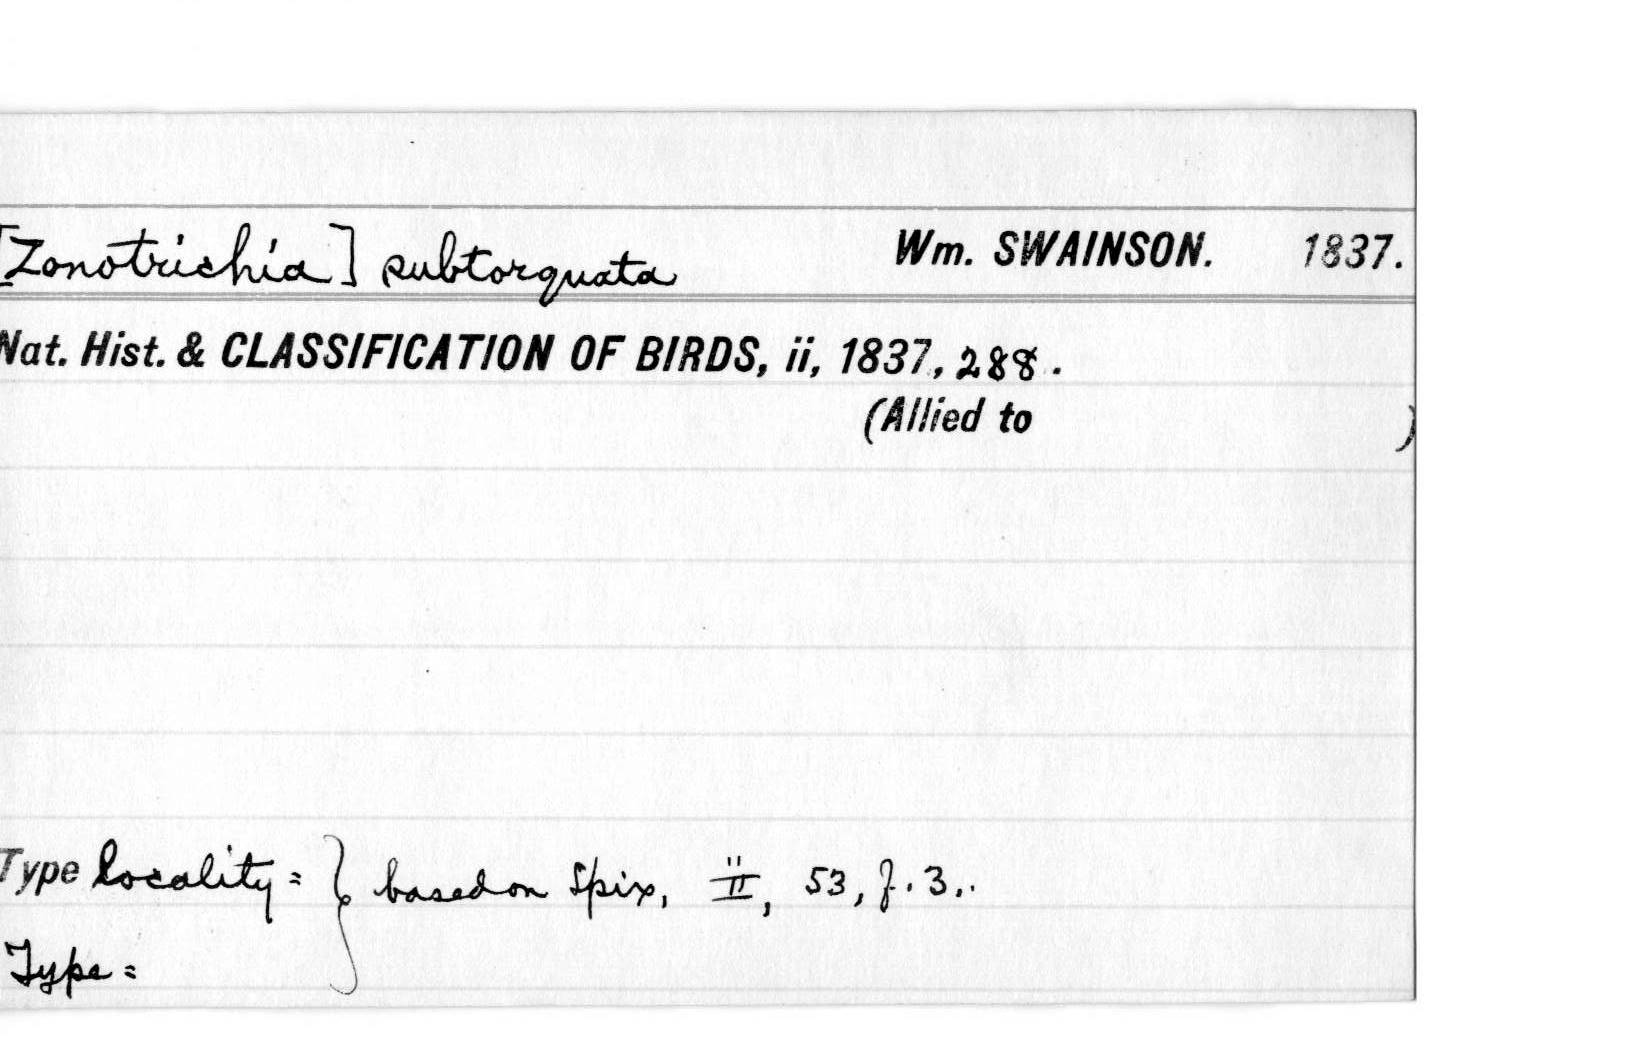 [Zonotrichia] subtorquata Wm. SWAINSON. 1837.
Nat. Hist. & CLASSIFICATION OF BIRDS, ii, 1837, 288.
(Allied to )
Type locality = } based on Spix, II, 53, f. 3.
Type =